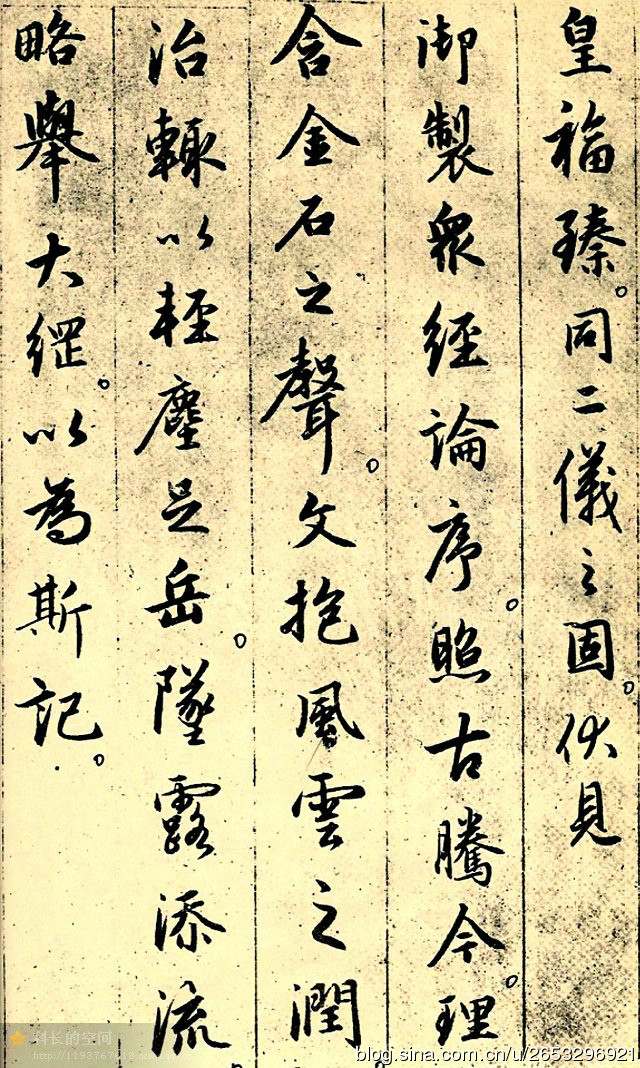 皇福臻。同二儀之固。伏見
御製衆經論序。照古騰今。理
含金石之聲。文抱風雲之潤。
治輙以輕塵足岳。墜露添流。
略舉大綱。以為斯記。
科长的空间
blog.sina.com.cn/u/2653296921